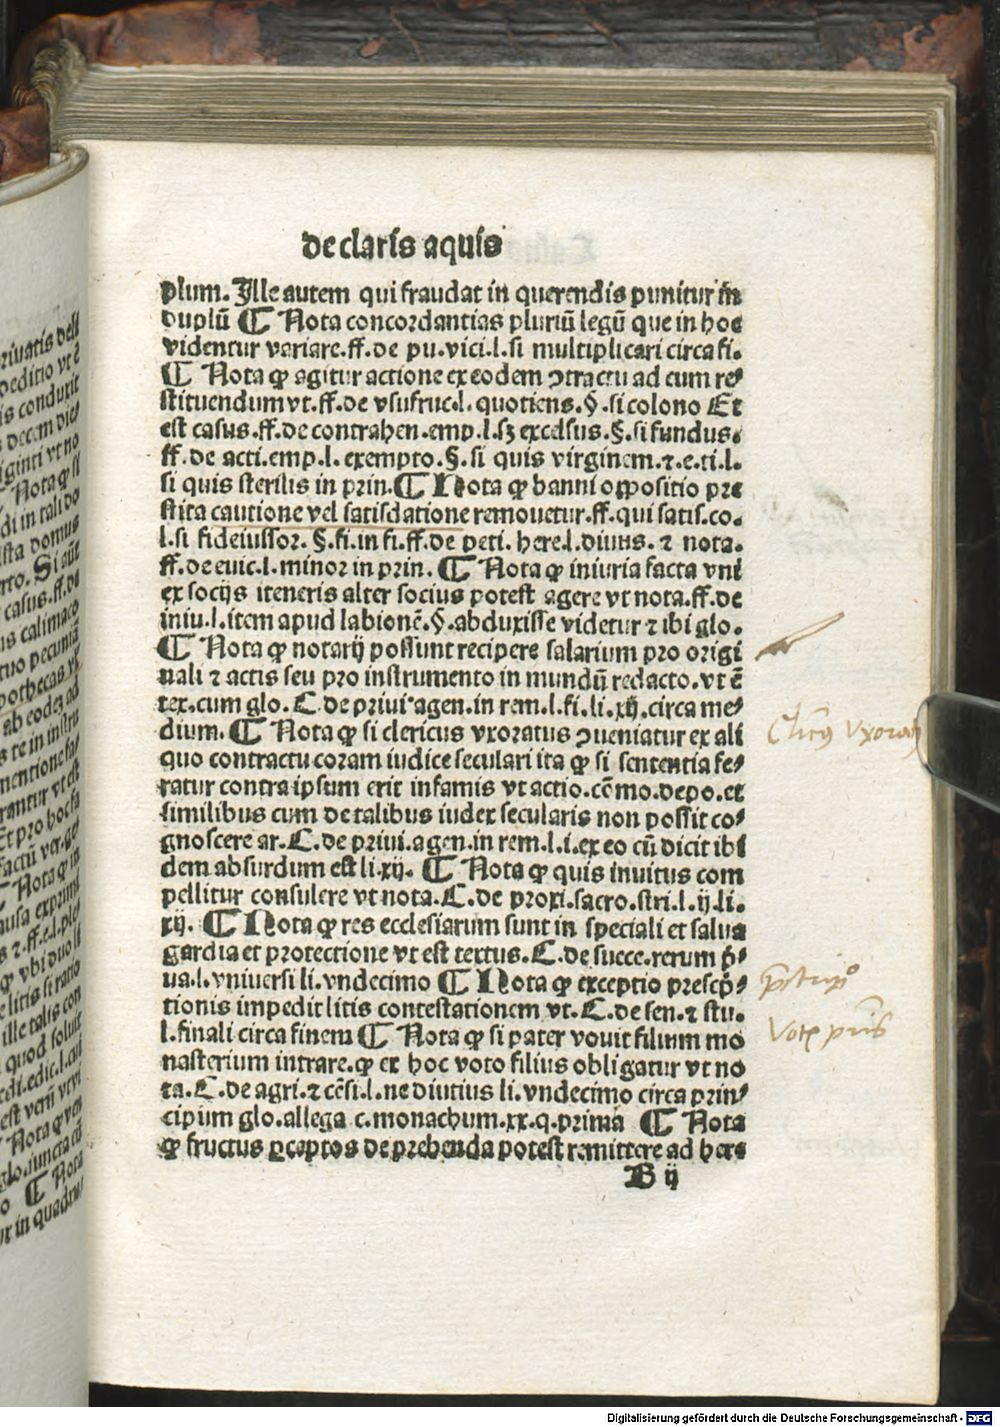 de claris aquis
plum. Ille autem qui fraudat in querendis punitur in
duplū ¶ Nota concordantias pluriū legū que in hoc
videntur variare.ff.de pu.vici.l.si multiplicari circa fi.
¶ Nota ꝙ agitur actione ex eodem ↄtractu ad eum re⸗
stituendum vt.ff.de vsufruc.l. quotiens.§.si colono Et
est casus.ff.de contrahen.emp.l.sꝫ excelsus.§.si fundus.
ff.de acti.emp.l. exempto.§.si quis virginem.⁊.e.ti.l.
si quis sterilis in prin.¶ Nota ꝙ banni oppositio pre
stita cautione vel satisdatione remouetur.ff.qui satis.co.
l.si fideiussor. §.fi.in fi.ff.de peti. here.l.diuus. ⁊ nota.
ff.de euic.l.minor in prin. ¶ Nota ꝙ iniuria facta vni
ex socijs iteneris alter socius potest agere vt nota.ff.de
iniu.l.item apud labionē.§.abduxisse videtur ⁊ ibi glo.
¶ Nota ꝙ notarij possunt recipere salarium pro origi
nali ⁊ actis seu pro instrumento in mundū redacto.vt ē
tex.cum glo. C de priui agen.in rem.l.fi.li.xij.circa me⸗
dium. ¶ Nota ꝙ si clericus vxoratus ↄueniatur ex ali
quo contractu coram iudice seculari ita ꝙ si sententia fe⸗
ratur contra ipsum erit infamis vt actio.cōmo.depo.et
similibus cum de talibus iudex secularis non possit co⸗
gnoscere ar.C.de priui.agen.in rem.l.i.ex eo cū dicit ibi
dem absurdum est li.xij. ¶ Nota ꝙ quis inuitus com
pellitur consulere vt nota.C.de proxi.sacro.scri.l.ij.li.
xij. ¶ Nota ꝙ res ecclesiarum sunt in speciali et salua
gardia et protectione vt est textus.C.de succe.rerum p̄⸗
ua.l.vniuersi li.vndecimo ¶ Nota ꝙ exceptio prescp̄⸗
tionis impedit litis contestationem vt.C.de sen.⁊ stu.
l.finali circa finem ¶ Nota ꝙ si pater vouit filium mo
nasterium intrare.ꝙ ex hoc voto filius obligatur vt no
ta.C.de agri.⁊ cēsi.l.ne diutius li.vndecimo circa prin⸗
cipium glo.allega c.monachum.xx.q.prima ¶ Nota
ꝙ fructus ꝑceptos de prebenda potest remittere ad here
B ij